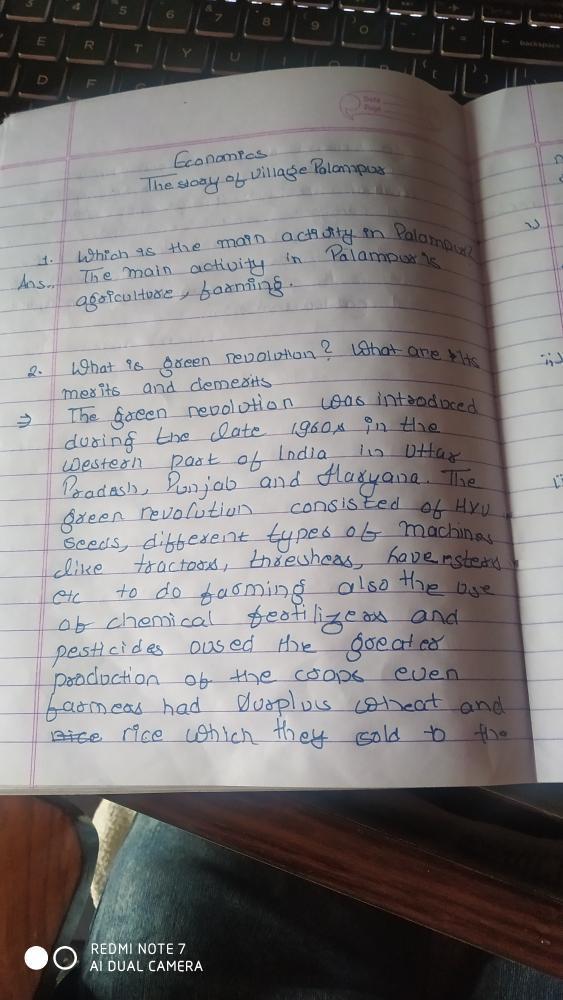 Date
Page
Economics
The story of village Palampur
1. Which is the main activity in Palampur?
Ans.. The main activity in Palampur is
agriculture, farming.
2. What is green revolution? What are its
merits and demerits
⇒ The green revolution was introduced
during the late 1960s in the
western part of India in Uttar
Pradesh, Punjab and Haryana. The
green revolution consisted of HYV
seeds, different types of machines
like tractors, threshess, havensters
etc to do farming also the use
of chemical festilizers and
pesticides oused the greater
production of the crops even
farmeas had surplus wheat and
rice rice which they sold to the
REDMI NOTE 7
AI DUAL CAMERA
3
4
5
6
7
8
9
0
E
R
T
Y
U
D
F
backspace